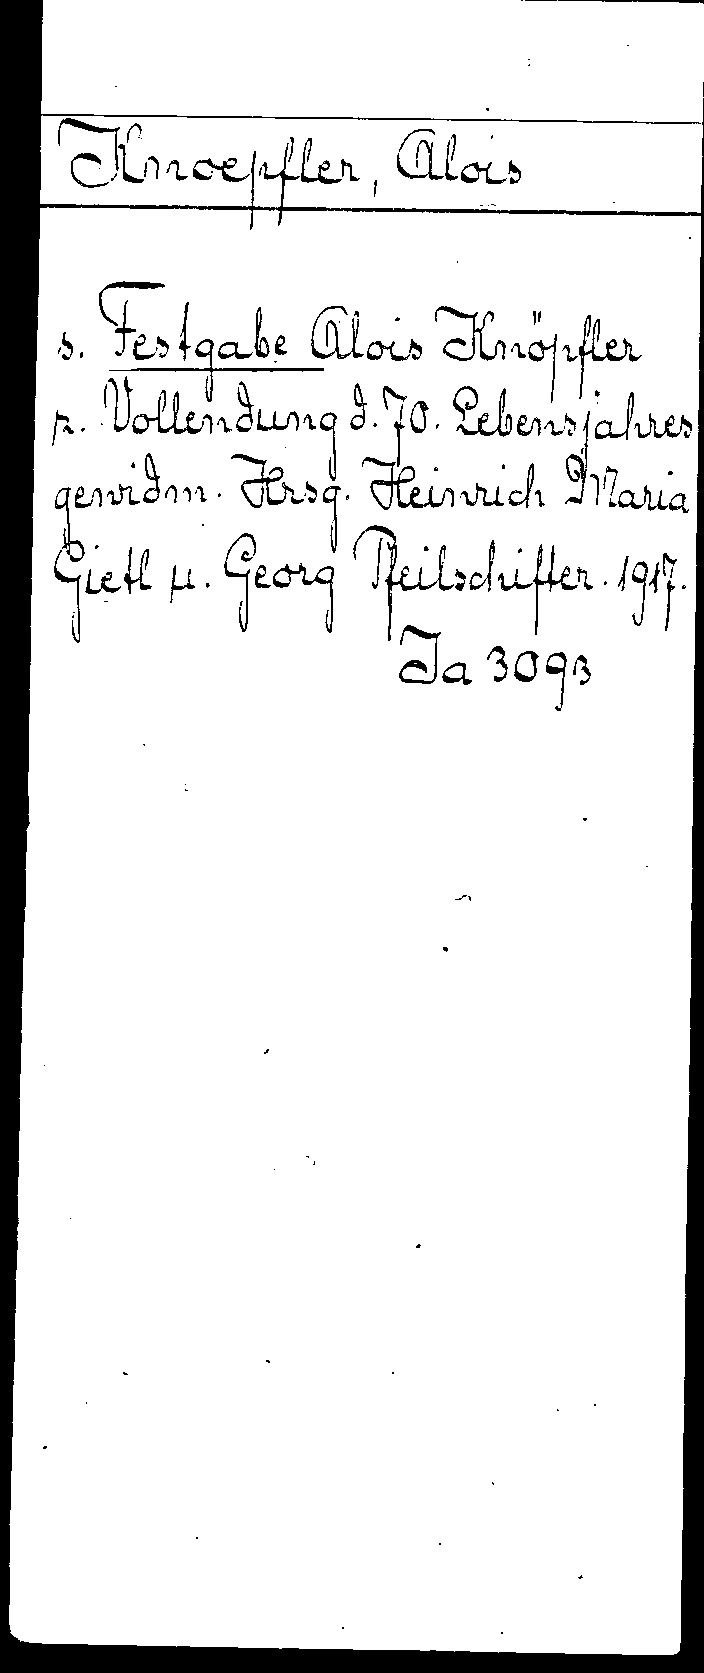 Knoepfler, Alois
s. Festgabe Alois Knöpfler
z. Vollendung d. 70. Lebensjahres
gewidm. Hrsg. Heinrich Maria
Gietl u. Georg Pfeilschifter. 1917.
Ja 3093